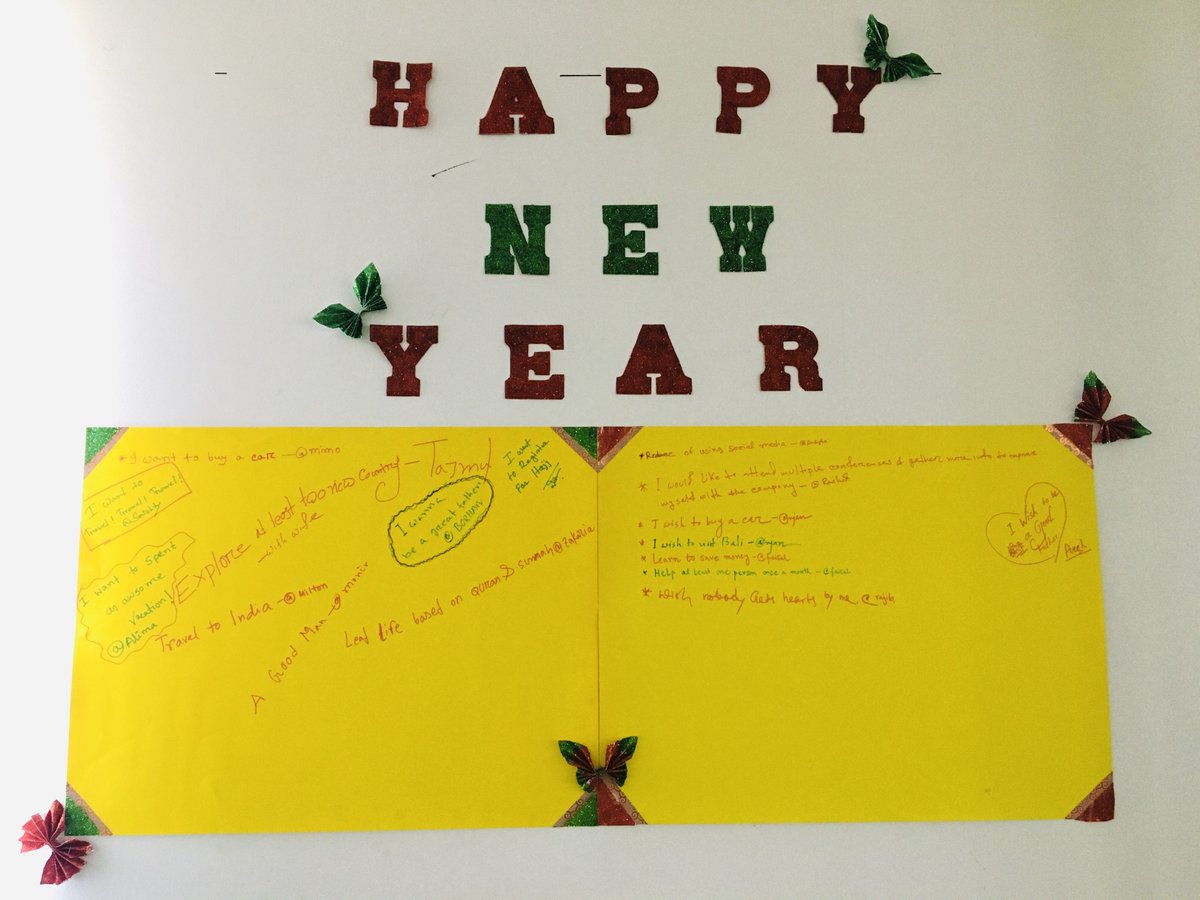 HAPPY
NEW
YEAR
* I want to buy a car - @mimo
I want to
Travel! Travel! Travel!
Explore at least two new country - Tajmul
- with wife
I want
to Register
for Hajj
I wanna
be a great father
@ BORHAN
I want to spent
an awsome
vacation!
@Alima
Travel to India - @ Milton
A Good Man - @ monir
Lead life based on quran & sunnah @ Zakaria
* Reduce of using social media -
* I would like to attend multiple conferences & gather more info to improve
myself with the company - @
* I wish to buy a car - @rijan
* I wish to visit Bali - @rijan
* Learn to save money - @faisal
* Help at least one person once a month - @faisal
* Wish nobody gets hearts by me @ rajib
I wish to be
a Good
Father